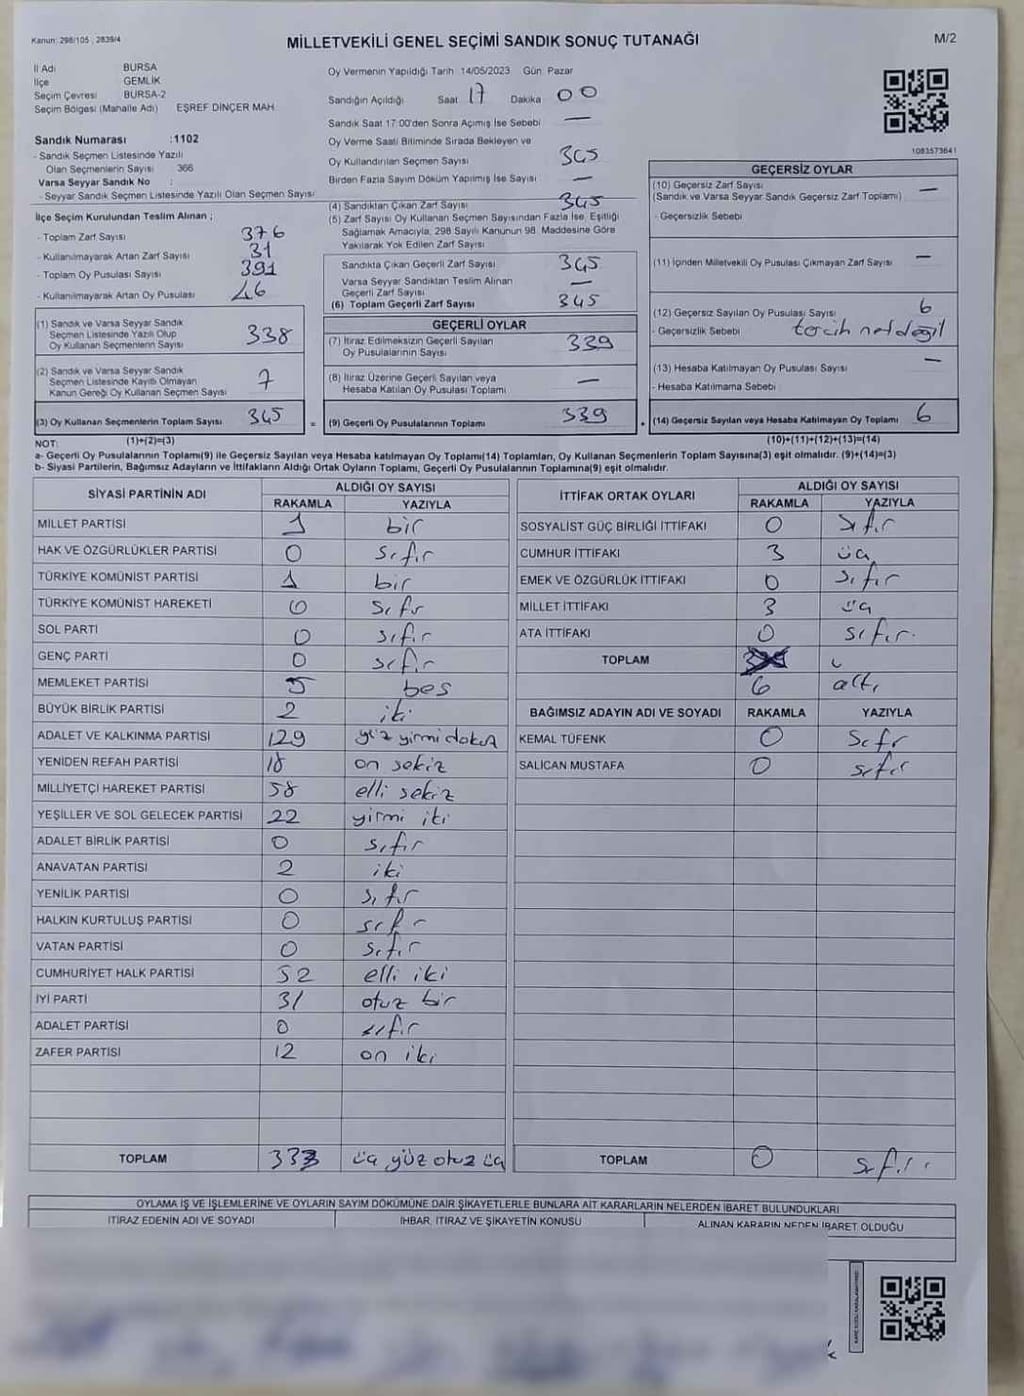 Kanun: 298/105 , 2839/4
MİLLETVEKİLİ GENEL SEÇİMİ SANDIK SONUÇ TUTANAĞI
M/2
İl Adı BURSA
İlçe GEMLİK
Seçim Çevresi BURSA-2
Seçim Bölgesi (Mahalle Adı) EŞREF DİNÇER MAH.
Sandık Numarası :1102
- Sandık Seçmen Listesinde Yazılı
Olan Seçmenlerin Sayısı 366
Varsa Seyyar Sandık No :
- Seyyar Sandık Seçmen Listesinde Yazılı Olan Seçmen Sayısı
İlçe Seçim Kurulundan Teslim Alınan ;
- Toplam Zarf Sayısı 376
- Kullanılmayarak Artan Zarf Sayısı 31
- Toplam Oy Pusulası Sayısı 391
- Kullanılmayarak Artan Oy Pusulası 46
(1) Sandık ve Varsa Seyyar Sandık
Seçmen Listesinde Yazılı Olup
Oy Kullanan Seçmenlerin Sayısı 338
(2) Sandık ve Varsa Seyyar Sandık
Seçmen Listesinde Kayıtlı Olmayan
Kanun Gereği Oy Kullanan Seçmen Sayısı 7
(3) Oy Kullanan Seçmenlerin Toplam Sayısı 345 =
Oy Vermenin Yapıldığı Tarih 14/05/2023 Gün Pazar
Sandığın Açıldığı Saat 17 Dakika 00
Sandık Saat 17:00'den Sonra Açımış İse Sebebi —
Oy Verme Saati Bitiminde Sırada Bekleyen ve
Oy Kullandırılan Seçmen Sayısı 345
Birden Fazla Sayım Döküm Yapılmış İse Sayısı —
(4) Sandıktan Çıkan Zarf Sayısı 345
(5) Zarf Sayısı Oy Kullanan Seçmen Sayısından Fazla İse, Eşitliği
Sağlamak Amacıyla, 298 Sayılı Kanunun 98. Maddesine Göre
Yakılarak Yok Edilen Zarf Sayısı
Sandıkta Çıkan Geçerli Zarf Sayısı 345
Varsa Seyyar Sandıktan Teslim Alınan
Geçerli Zarf Sayısı —
(6) Toplam Geçerli Zarf Sayısı 345
GEÇERLİ OYLAR
(7) İtiraz Edilmeksizin Geçerli Sayılan
Oy Pusulalarının Sayısı 339
(8) İtiraz Üzerine Geçerli Sayılan veya
Hesaba Katılan Oy Pusulası Toplamı —
(9) Geçerli Oy Pusulalarının Toplamı 339
1083573641
GEÇERSİZ OYLAR
(10) Geçersiz Zarf Sayısı —
(Sandık ve Varsa Seyyar Sandık Geçersiz Zarf Toplamı)
- Geçersizlik Sebebi
(11) İçinden Milletvekili Oy Pusulası Çıkmayan Zarf Sayısı —
(12) Geçersiz Sayılan Oy Pusulası Sayısı 6
- Geçersizlik Sebebi tercih net değil
(13) Hesaba Katılmayan Oy Pusulası Sayısı —
- Hesaba Katılmama Sebebi
(14) Geçersiz Sayılan veya Hesaba Katılmayan Oy Toplamı 6
NOT: (1)+(2)=(3) (10)+(11)+(12)+(13)=(14)
a- Geçerli Oy Pusulalarının Toplamı(9) ile Geçersiz Sayılan veya Hesaba Katılmayan Oy Toplamı(14) Toplamları, Oy Kullanan Seçmenlerin Toplam Sayısına(3) eşit olmalıdır. (9)+(14)=(3)
b- Siyasi Partilerin, Bağımsız Adayların ve İttifakların Aldığı Ortak Oyların Toplamı, Geçerli Oy Pusulalarının Toplamına(9) eşit olmalıdır.
SİYASİ PARTİNİN ADI ALDIĞI OY SAYISI
RAKAMLA YAZIYLA
MİLLET PARTİSİ 1 bir
HAK VE ÖZGÜRLÜKLER PARTİSİ 0 sıfır
TÜRKİYE KOMÜNİST PARTİSİ 1 bir
TÜRKİYE KOMÜNİST HAREKETİ 0 sıfır
SOL PARTİ 0 sıfır
GENÇ PARTİ 0 sıfır
MEMLEKET PARTİSİ 5 beş
BÜYÜK BİRLİK PARTİSİ 2 iki
ADALET VE KALKINMA PARTİSİ 129 yüz yirmi dokuz
YENİDEN REFAH PARTİSİ 18 on sekiz
MİLLİYETÇİ HAREKET PARTİSİ 58 elli sekiz
YEŞİLLER VE SOL GELECEK PARTİSİ 22 yirmi iki
ADALET BİRLİK PARTİSİ 0 sıfır
ANAVATAN PARTİSİ 2 iki
YENİLİK PARTİSİ 0 sıfır
HALKIN KURTULUŞ PARTİSİ 0 sıfır
VATAN PARTİSİ 0 sıfır
CUMHURİYET HALK PARTİSİ 52 elli iki
İYİ PARTİ 31 otuz bir
ADALET PARTİSİ 0 sıfır
ZAFER PARTİSİ 12 on iki
TOPLAM 333 üç yüz otuz üç
İTTİFAK ORTAK OYLARI ALDIĞI OY SAYISI
RAKAMLA YAZIYLA
SOSYALİST GÜÇ BİRLİĞİ İTTİFAKI 0 sıfır
CUMHUR İTTİFAKI 3 üç
EMEK VE ÖZGÜRLÜK İTTİFAKI 0 sıfır
MİLLET İTTİFAKI 3 üç
ATA İTTİFAKI 0 sıfır.
TOPLAM
6 altı
BAĞIMSIZ ADAYIN ADI VE SOYADI RAKAMLA YAZIYLA
KEMAL TÜFENK 0 sıfır
SALİCAN MUSTAFA 0 sıfır
TOPLAM 0 sıfır
OYLAMA İŞ VE İŞLEMLERİNE VE OYLARIN SAYIM DÖKÜMÜNE DAİR ŞİKAYETLERLE BUNLARA AİT KARARLARIN NELERDEN İBARET BULUNDUKLARI
İTİRAZ EDENİN ADI VE SOYADI İHBAR, İTİRAZ VE ŞİKAYETİN KONUSU ALINAN KARARIN NEDEN İBARET OLDUĞU